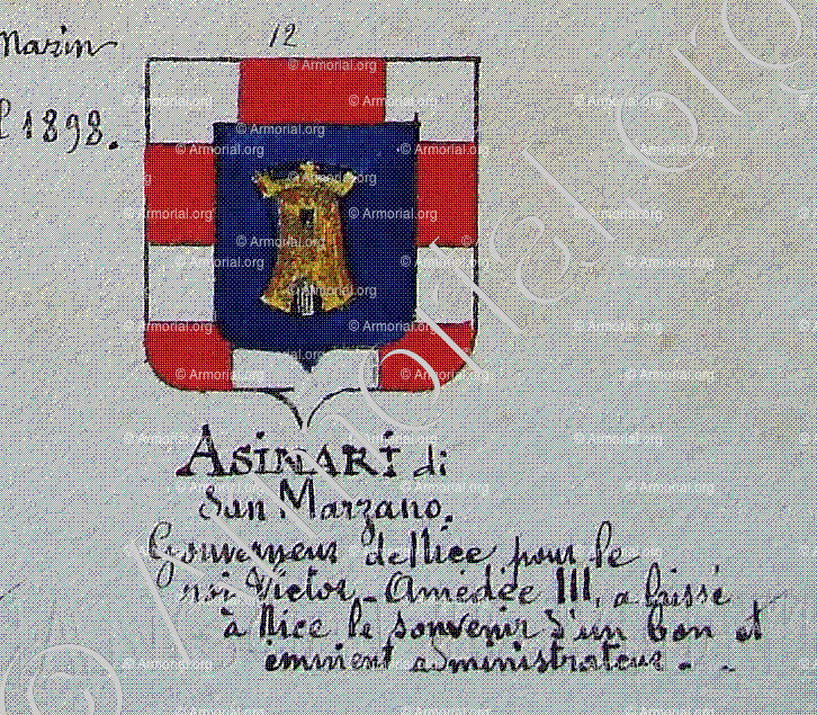 12
Mazin
l 1898.
ASINARI di
San Marzano.
Gouverneur de Nice pour le
roi Victor-Amédée III, a laissé
à Nice le souvenir d'un bon et
eminent administrateur.
© Armorial.org